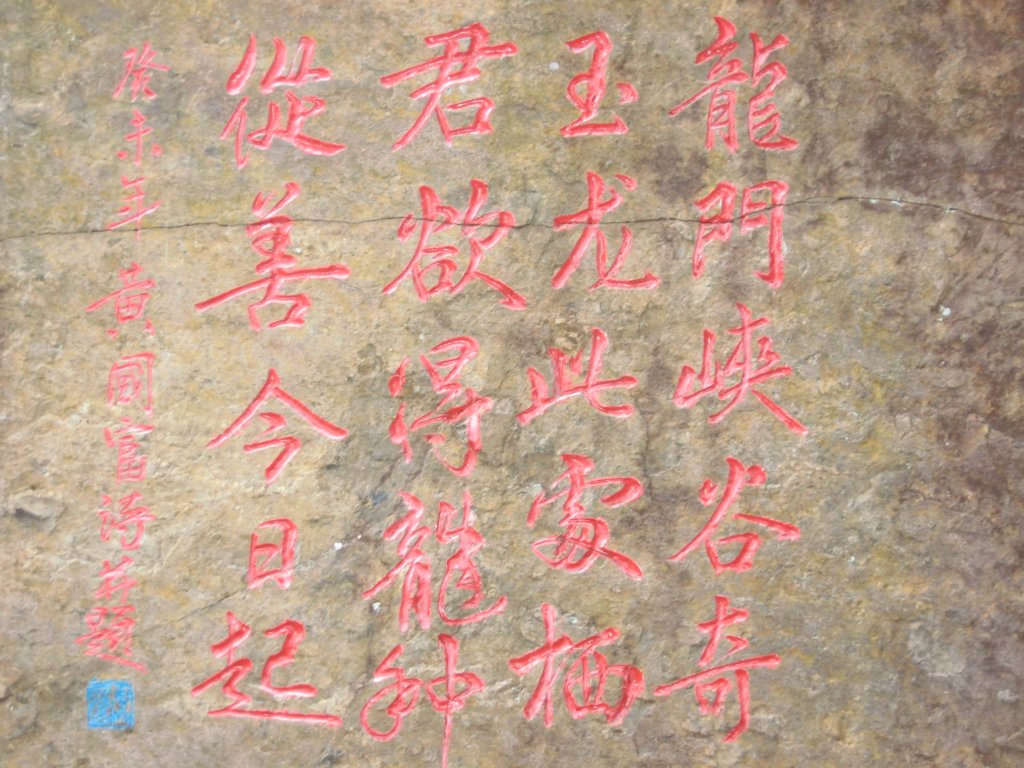 龍門峽谷奇
玉龙此處栖
君欲得龍种
從善今日起
癸未年黄國富詩并題